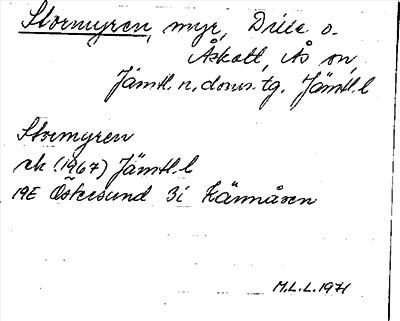 Stormyren, myr, Drice o.
Åskott, Ås sn,
Jämtl. n. doms. tg. Jämtl. l
Stormyren
ek (1967) Jämtl. l
19E Östersund 3i Kännåsen
M.L.L. 1971